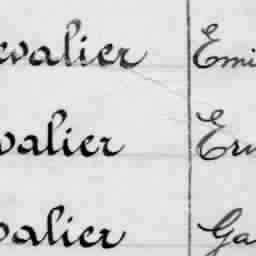 evalier Emi
valier Ern
valier Ga